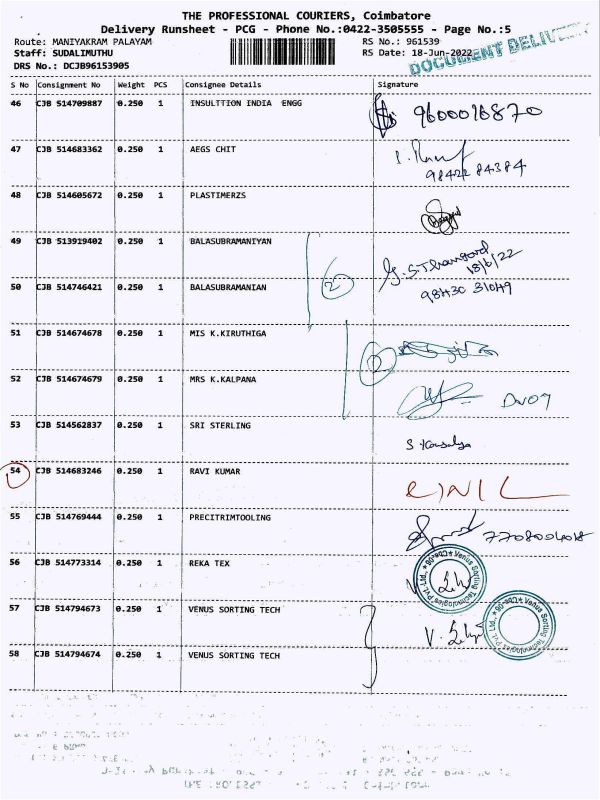 THE PROFESSIONAL COURIERS, Coimbatore
Delivery Runsheet - PCG - Phone No.:0422-3505555 - Page No.:5
Route: MANIYAKRAM PALAYAM RS No.: 961539
Staff: SUDALIMUTHU RS Date: 18-Jun-2022
DOCUMENT DELIVERY
DRS No.: DCJB96153905
S No Consignment No Weight PCS Consignee Details Signature
46 CJB 514709887 0.250 1 INSULTTION INDIA ENGG 9600016870
47 CJB 514683362 0.250 1 AEGS CHIT
98422 84384
48 CJB 514605672 0.250 1 PLASTIMERZS
49 CJB 513919402 0.250 1 BALASUBRAMANIYAN
18/6/22
2
50 CJB 514746421 0.250 1 BALASUBRAMANIAN 98430 31049
51 CJB 514674678 0.250 1 MIS K.KIRUTHIGA
2
52 CJB 514674679 0.250 1 MRS K.KALPANA
53 CJB 514562837 0.250 1 SRI STERLING
S Kousalya
54 CJB 514683246 0.250 1 RAVI KUMAR
55 CJB 514769444 0.250 1 PRECITRIMTOOLING
56 CJB 514773314 0.250 1 REKA TEX
Venus Sorting Technologies Pvt. Ltd., Cbe-06
57 CJB 514794673 0.250 1 VENUS SORTING TECH
Venus Sorting Technologies Pvt. Ltd., Cbe-06
58 CJB 514794674 0.250 1 VENUS SORTING TECH